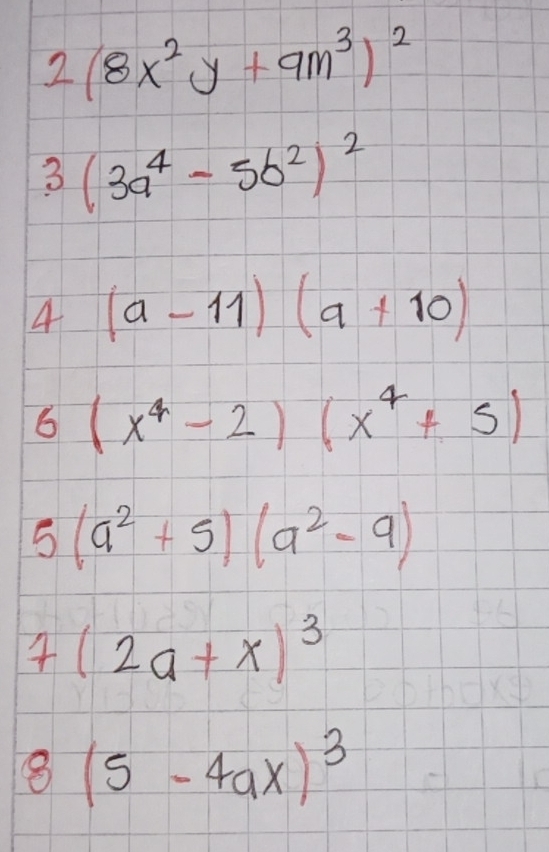 2 (8x² y + 9m³)²
3 (3a⁴ - 5b²)²
4 (a - 11) (a + 10)
6 (x⁴ - 2) (x⁴ + 5)
5 (a² + 5) (a² - 9)
7 (2a + x)³
8 (5 - 4ax)³